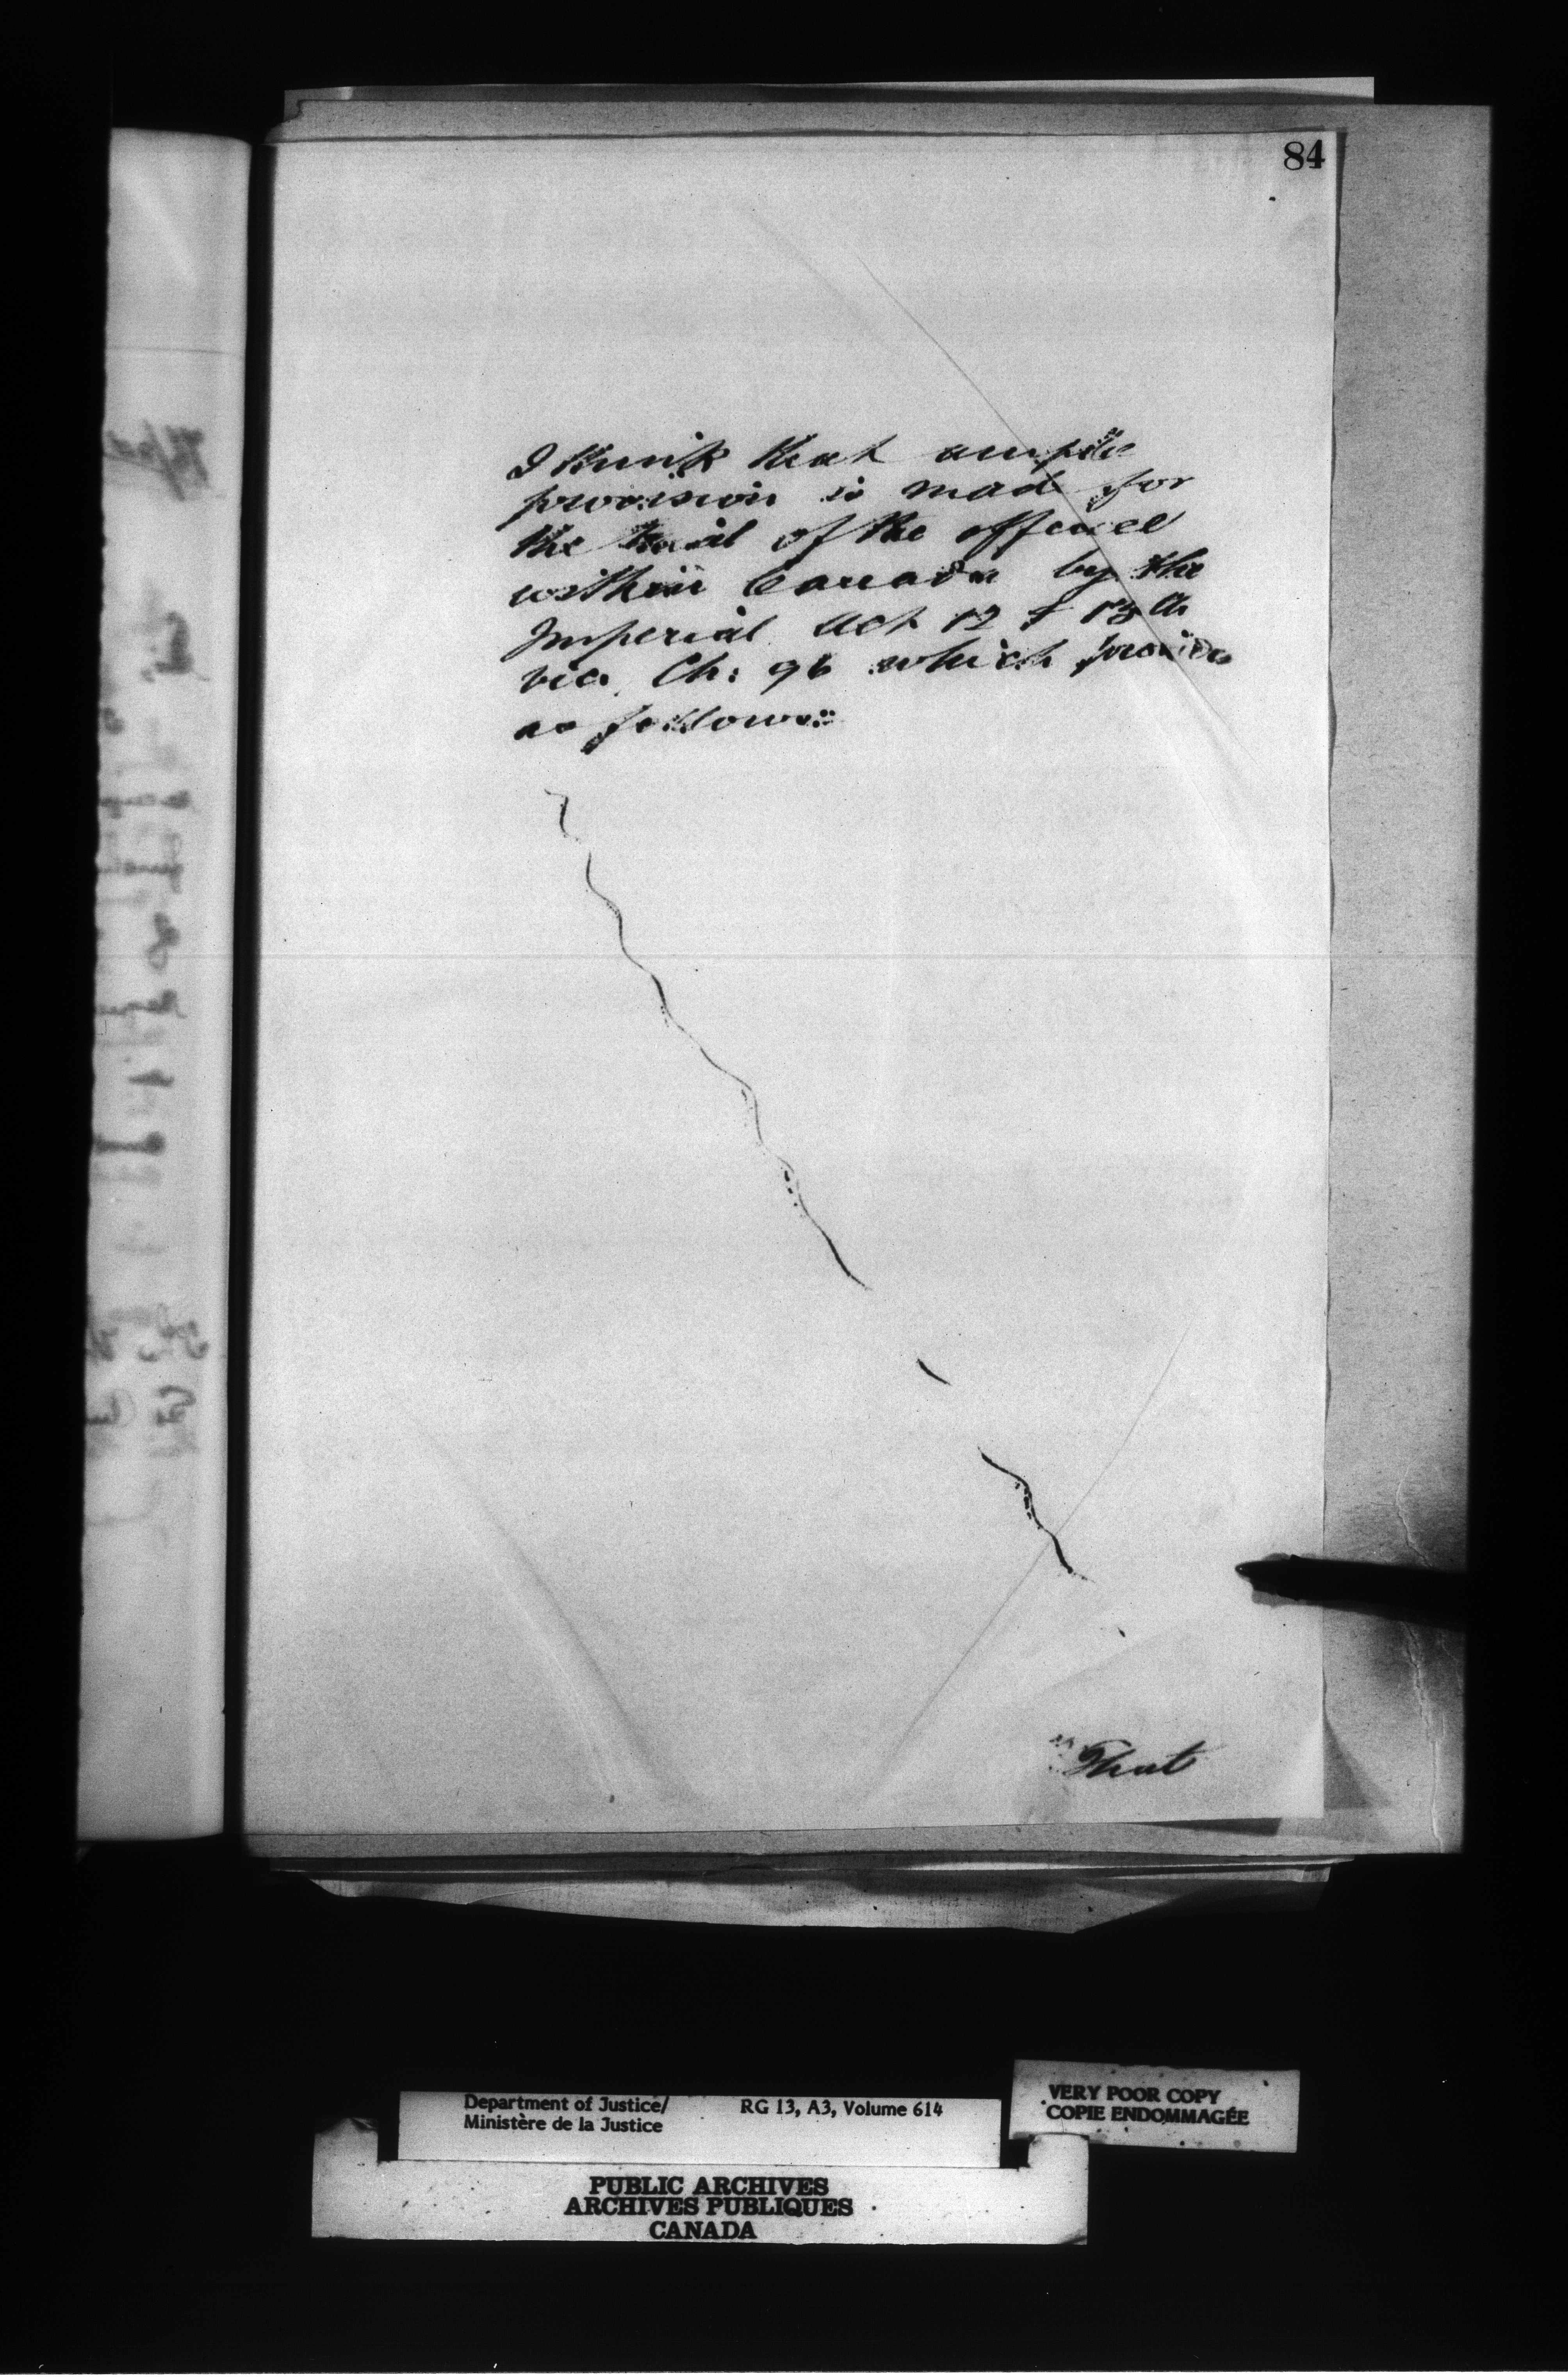 84
I think that ample
provision is made for
the trial of the offence
within Canada by the
Imperial Act 12 & 13th
Vic. Ch: 96 which provides
as follows:
"That
Department of Justice/ RG 13, A3, Volume 614
Ministère de la Justice
VERY POOR COPY
COPIE ENDOMMAGÉE
PUBLIC ARCHIVES
ARCHIVES PUBLIQUES
CANADA